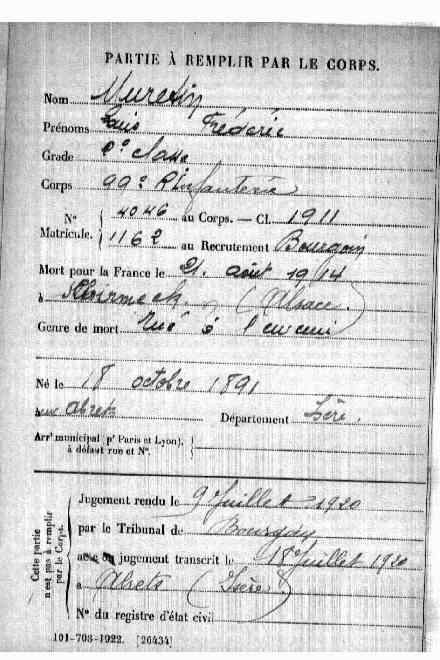 PARTIE À REMPLIR PAR LE CORPS.
Nom Muretin
Prénoms Louis Frédéric
Grade 2e classe
Corps 99e R Infanterie
N° 4046 au Corps. — Cl. 1911
Matricule. 1162 au Recrutement Bourgoin
Mort pour la France le 21 août 1914
à Schirmeck (Alsace)
Genre de mort Tué à l'ennemi
Né le 18 octobre 1891
Abrets Département Isère.
Arrt municipal (pr Paris et Lyon),
à défaut rue et N°.
Cette partie
n'est pas à remplir
par le Corps.
Jugement rendu le 9 Juillet 1920
par le Tribunal de Bourgoin
acte ou jugement transcrit le 18 Juillet 1920
à Abrets (Isère)
N° du registre d'état civil
101-708-1922. [26434]